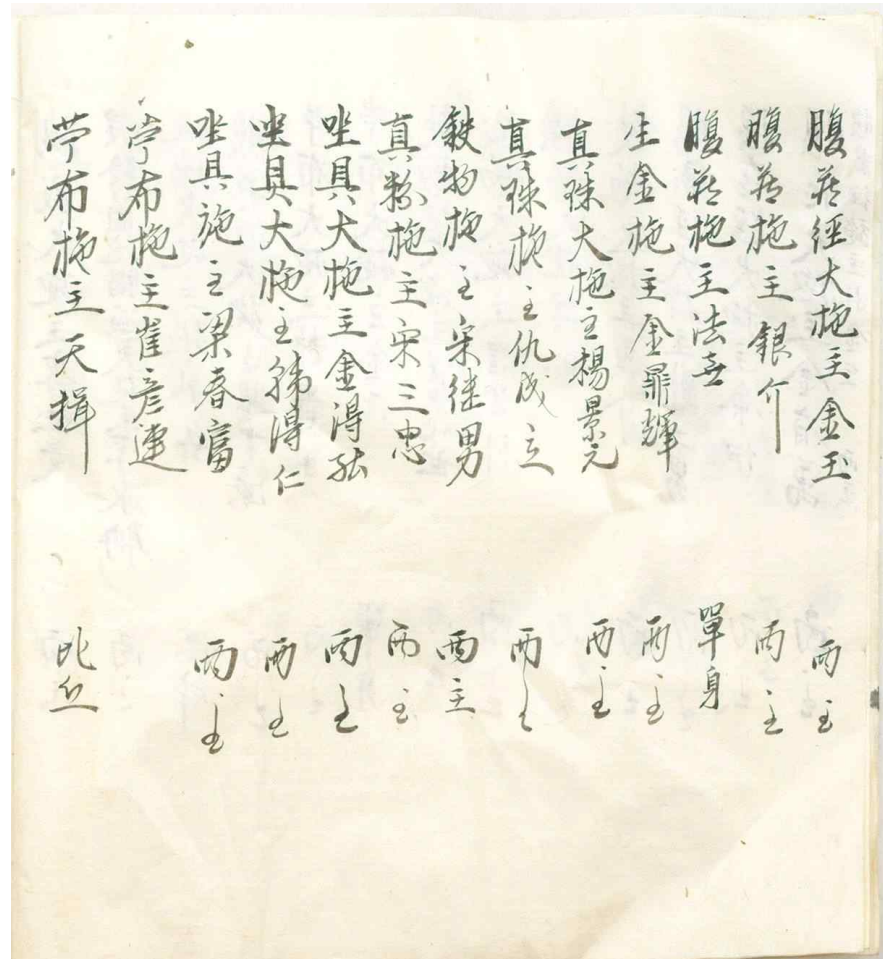 腹藏經大施主金玉 両主
腹藏施主銀介 両主
腹藏施主法玄 單身
生金施主金鼎輝 両主
真珠大施主楊景元 両主
真珠施主仇成立 両主
鉄物施主宋継男 両主
真粉施主宋三忠 両主
坐具大施主金淂 両主
坐具大施主韩淂仁 両主
坐具施主梁春富 両主
苧布施主崔彦連
苧布施主天揖 比丘